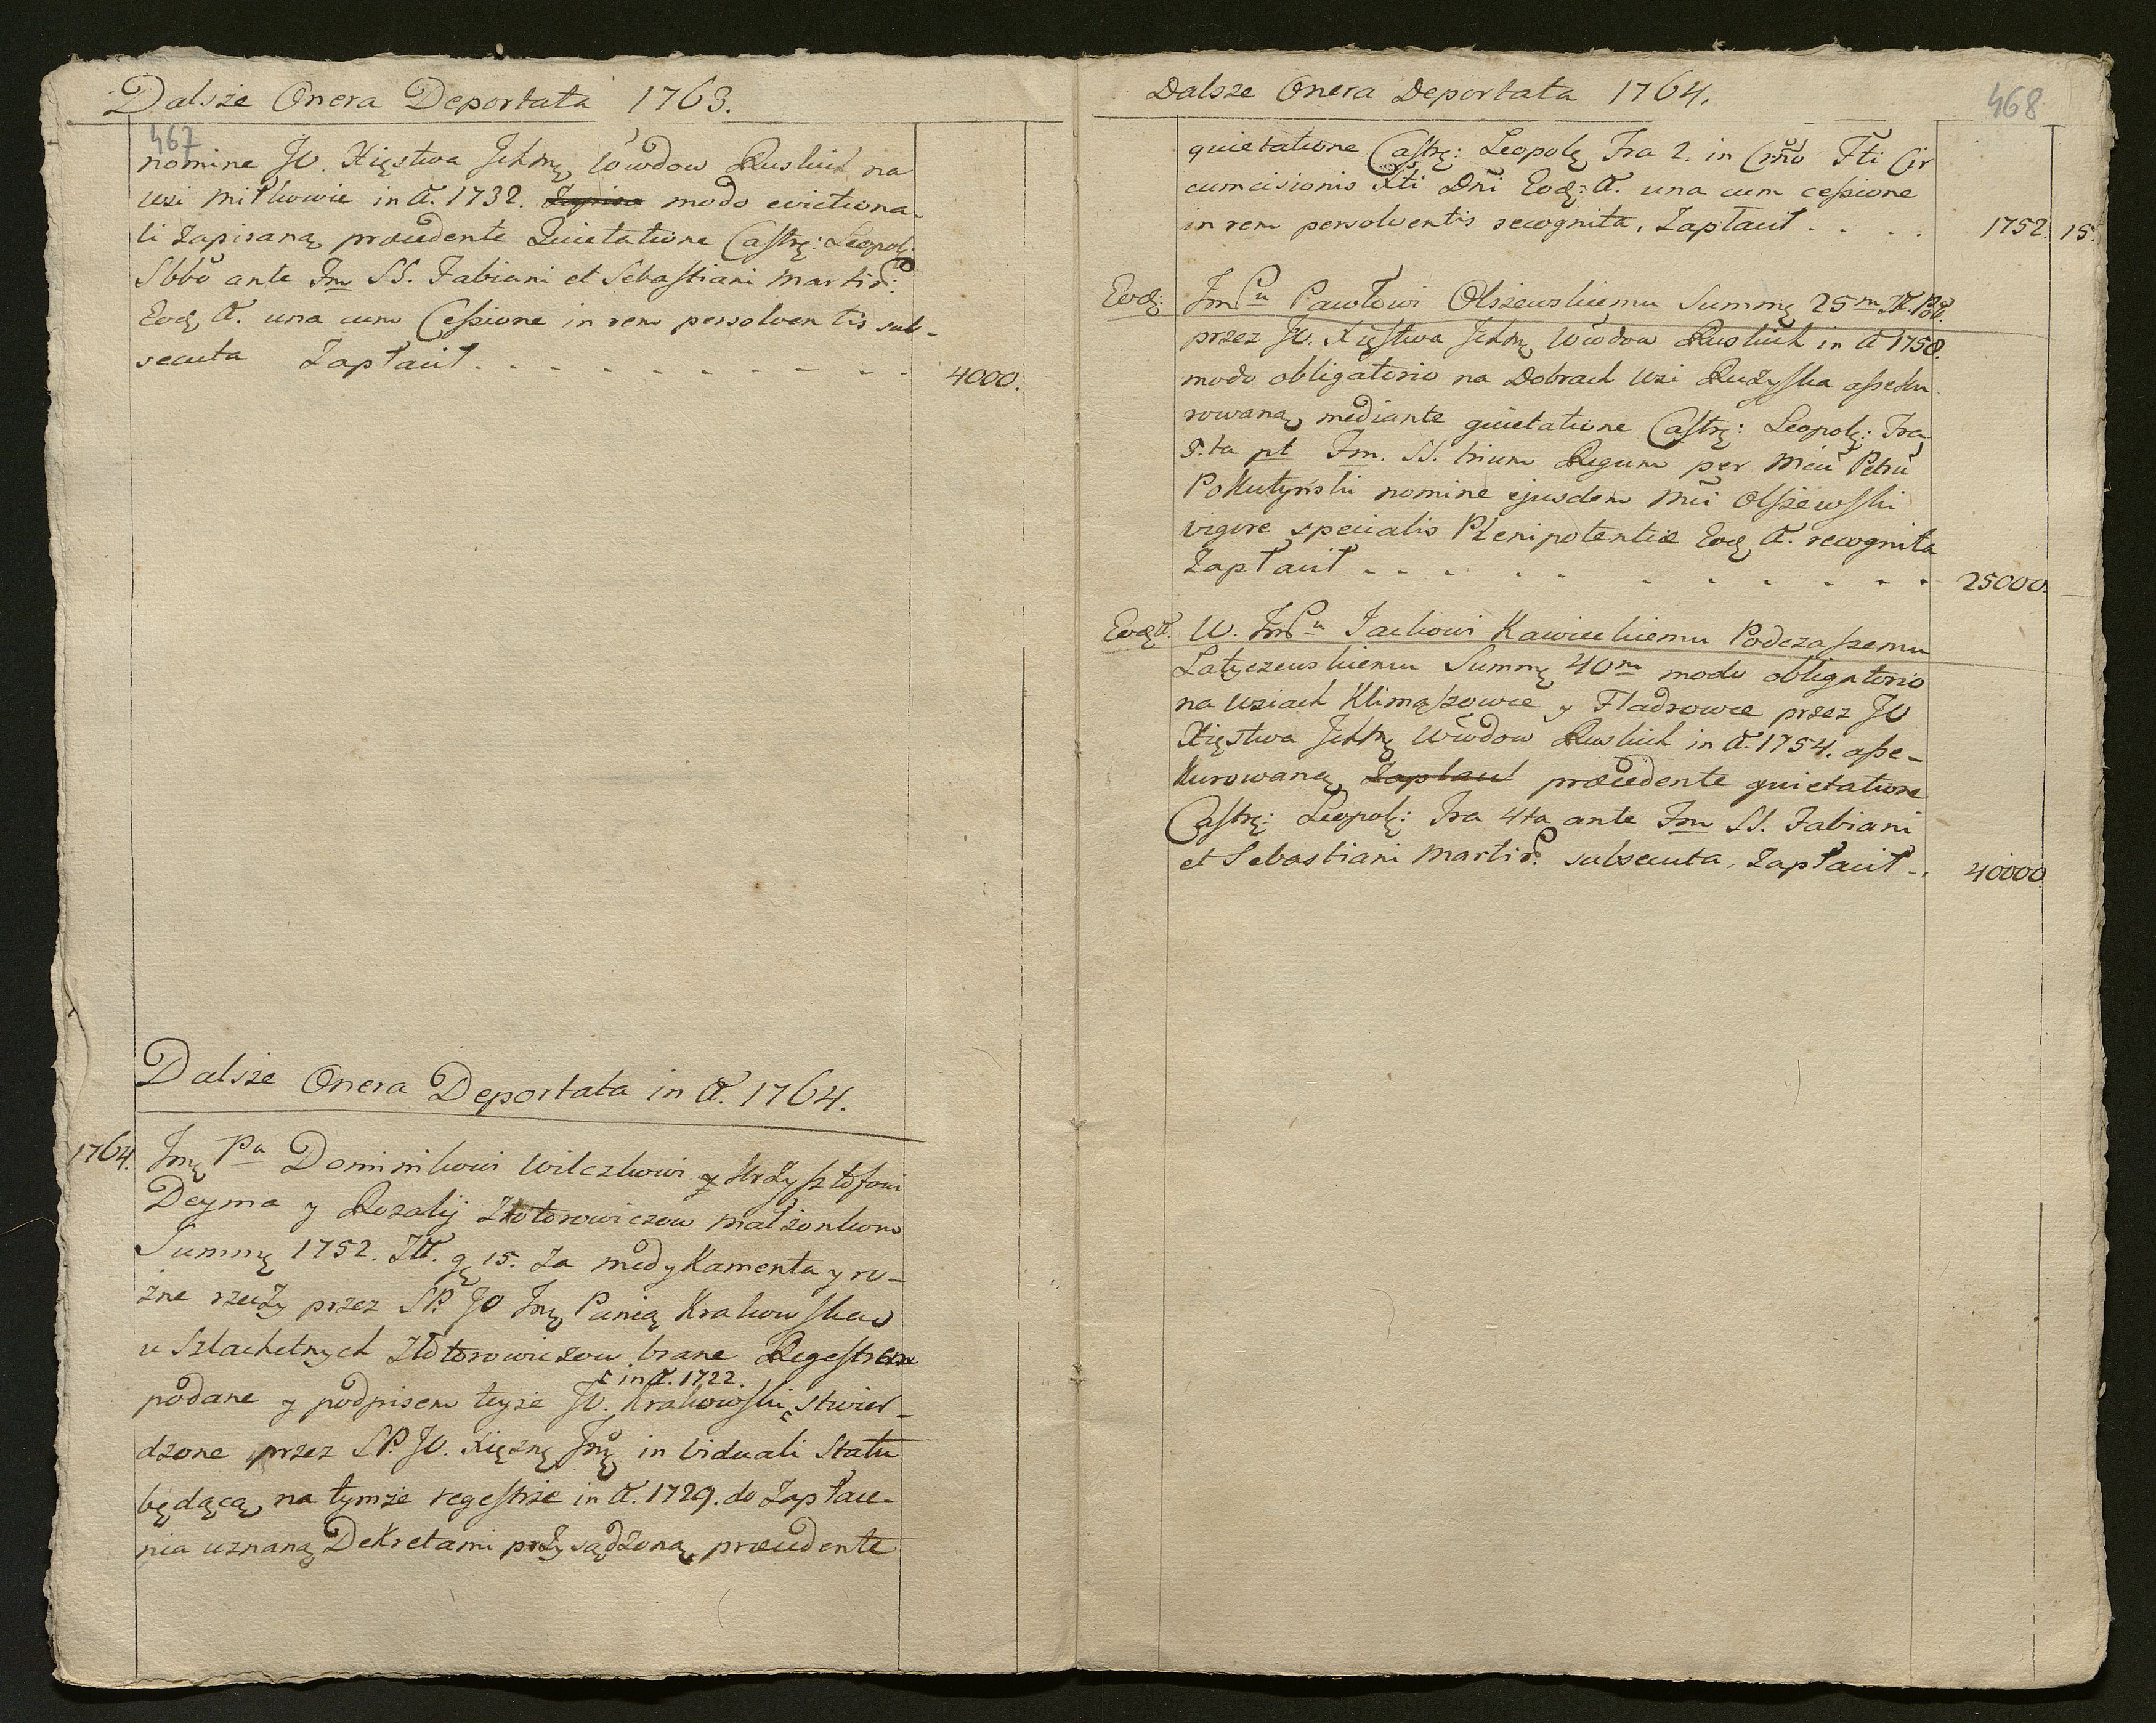 Dalsze Onera Deportata 1763.
467
nomine JO. Xięstwa Ichm̃ Wwdow Ruskich na
wsi Milkowie in A. 1732. Zapisa modo evictiona-
li zapisaną, præcedente Quietatione Castrẽ: Leopolẽ
Sbbõ ante Fm SS. Fabiani et Sebastiani Martir:
Eodẽ A. una cum Cessione in rem persolventis sub-
secuta Zapłacił . . . . . . . . . 4000.
Dalsze Onera Deportata in A. 1764.
1764. Jmć Pu Dominikowi Wilczkowi y Krzysztofowi
Deyma y Rozalij Złotorowiczow małżonkom
Summę 1752. Zł. gr 15. za medykamenta y ro-
żne rzeczy przez SP. JO Jmć Panią Krakowską
u Szlachetnych Złotorowiczow brane Regestrem
in A. 1722.
podane y podpisem teyże JO. Krakowski stwier-
dzone przez SP. JO. Xiężnę Jmć in viduali Statu
będącą, na tymże regestrze in A. 1729. do zapłace-
nia uznaną, Dekretami przysądzoną, præcedente
Dalsze Onera Deportata 1764.
468
quietatione Castrẽ: Leopolẽ Fra 2. in Cr̃no Fti Cir
cumcisionis Xti Dñi Eodẽ: A. una cum cessione
in rem persolventis recognita, Zapłacił . . . . 1752. 15.
Eodẽ: Jm Pu Pawłowi Olszewskiemu Summę 25m Zł. Pol.
przez JO. Xięstwa Ichm̃ Wwdow Ruskich in A 1758.
modo obligatorio na Dobrach wsi Rużyska asseku
rowaną, mediante quietatione Castrẽ: Leopolẽ: Fra
5.ta pt Fm. SS. trium Regum per Mcũ Petrũ
Pokutyński nomine ejusdem Mci Olszewski
vigore specialis Plenipotentiæ Eodẽ A. recognita
Zapłacił . . . . . . . . . . . 25000.
Eodẽ A. W. Jm Pu Jackowi Kawieckiemu Podczaszemu
Latyczewskiemu Summę 40m modo obligatorio
na wsiach Klimaszowce y Fladrowce przez JO
Xięstwa Ichm̃ Wwdow Ruskich in A. 1754. asse-
kurowaną, Zapłacił præcedente quietatione
Castrẽ: Leopolẽ: Fra 4ta ante Fm SS. Fabiani
et Sebastiani Martir: subsecuta, Zapłacił . . 40000.